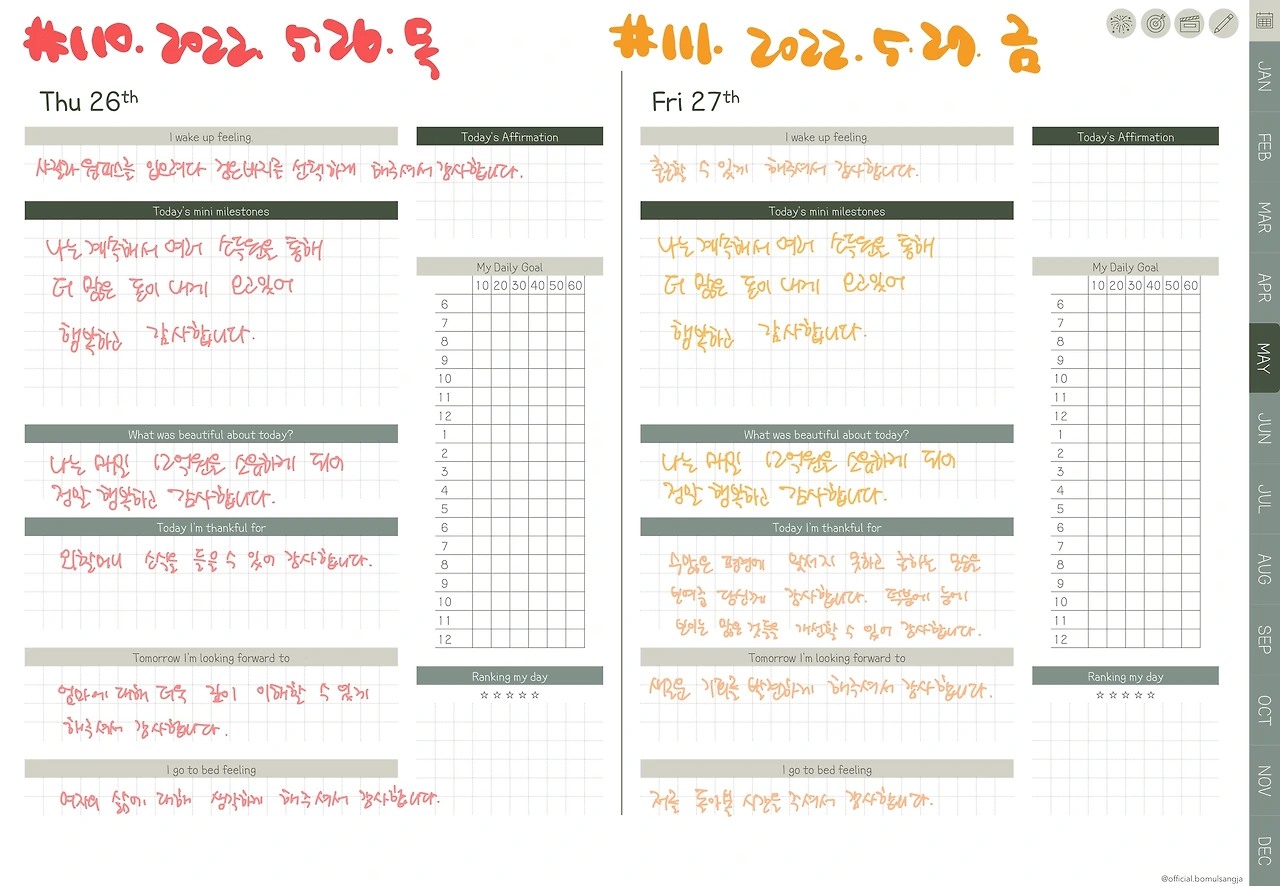 #110. 2022. 5. 26. 목
Thu 26th
I wake up feeling,
입으려다 검은바지를 선택하게 해주셔서 감사합니다.
Today's Affirmation
Today's mini milestones
나는 계속해서 여러 소득원을 통해
더 많은 돈이 내게 오고있어
행복하고 감사합니다.
My Daily Goal
10 20 30 40 50 60
6
7
8
9
10
11
12
1
2
3
4
5
6
7
8
9
10
11
12
What was beautiful about today?
나는 매일 12억원을 소유하게 되어
정말 행복하고 감사합니다.
Today I'm thankful for
외할머니 소식을 들을 수 있어 감사합니다.
Tomorrow I'm looking forward to
엄마에 대해 더욱 깊이 이해할 수 있게
해주셔서 감사합니다.
Ranking my day
☆☆☆☆☆
I go to bed feeling
여자의 삶에 대해 생각하게 해주셔서 감사합니다.
#111. 2022. 5. 27. 금
Fri 27th
I wake up feeling,
출근할 수 있게 해주셔서 감사합니다.
Today's Affirmation
Today's mini milestones
나는 계속해서 여러 소득원을 통해
더 많은 돈이 내게 오고있어
행복하고 감사합니다.
My Daily Goal
10 20 30 40 50 60
6
7
8
9
10
11
12
1
2
3
4
5
6
7
8
9
10
11
12
What was beautiful about today?
나는 매일 12억원을 소유하게 되어
정말 행복하고 감사합니다.
Today I'm thankful for
수많은 앞서지 못하고 모습을
보여준 당신께 감사합니다. 덕분에 눈에
보이는 많은 것들을 개선할 수 있어 감사합니다.
Tomorrow I'm looking forward to
새로운 기회를 발견하게 해주셔서 감사합니다.
Ranking my day
☆☆☆☆☆
I go to bed feeling
저를 돌아볼 시간을 주셔서 감사합니다.
JAN
FEB
MAR
APR
MAY
JUN
JUL
AUG
SEP
OCT
NOV
DEC
@official.bomulsangja